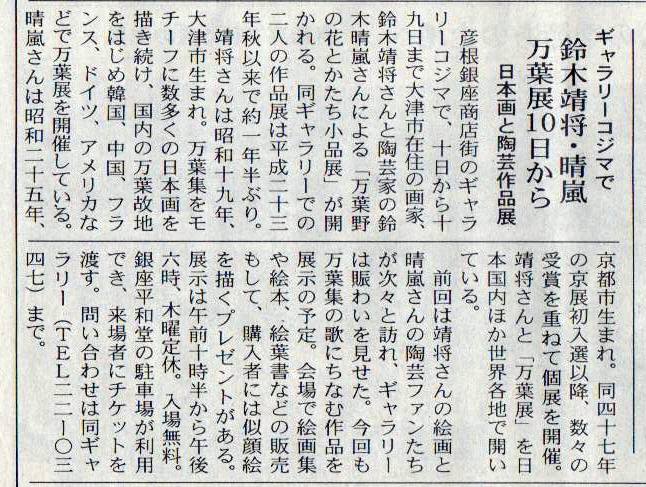 ギャラリーコジマで
鈴木靖将・晴嵐
万葉展10日から
日本画と陶芸作品展
彦根銀座商店街のギャラ
リーコジマで、十日から十
九日まで大津市在住の画家、
鈴木靖将さんと陶芸家の鈴
木晴嵐さんによる「万葉野
の花とかたち小品展」が開
かれる。同ギャラリーでの
二人の作品展は平成二十三
年秋以来で約一年半ぶり。
靖将さんは昭和十九年、
大津市生まれ。万葉集をモ
チーフに数多くの日本画を
描き続け、国内の万葉故地
をはじめ韓国、中国、フラ
ンス、ドイツ、アメリカな
どで万葉展を開催している。
晴嵐さんは昭和二十五年、
京都市生まれ。同四十七年
の京展初入選以降、数々の
受賞を重ねて個展を開催。
靖将さんと「万葉展」を日
本国内ほか世界各地で開い
ている。
前回は靖将さんの絵画と
晴嵐さんの陶芸ファンたち
が次々と訪れ、ギャラリー
は賑わいを見せた。今回も
万葉集の歌にちなむ作品を
展示の予定。会場で絵画集
や絵本、絵葉書などの販売
もして、購入者には似顔絵
を描くプレゼントがある。
展示は午前十時半から午後
六時、木曜定休。入場無料。
銀座平和堂の駐車場が利用
でき、来場者にチケットを
渡す。問い合わせは同ギャ
ラリー（TEL二二―〇三
四七）まで。